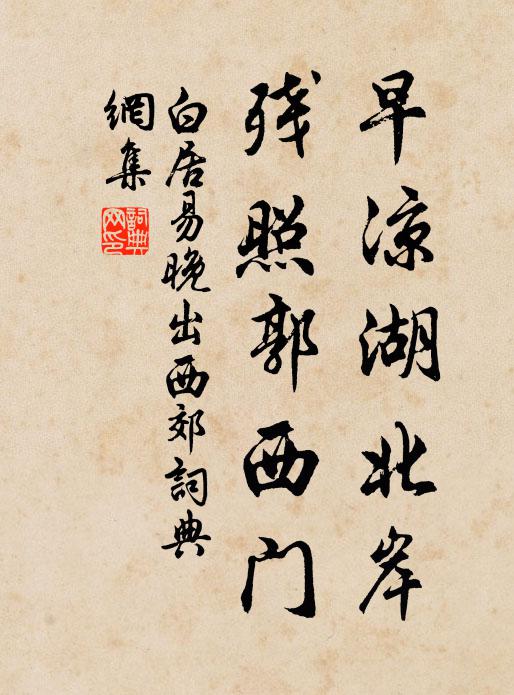 早凉湖北岸
残照郭西门
白居易晚出西郊詞典
網集
詞典網印